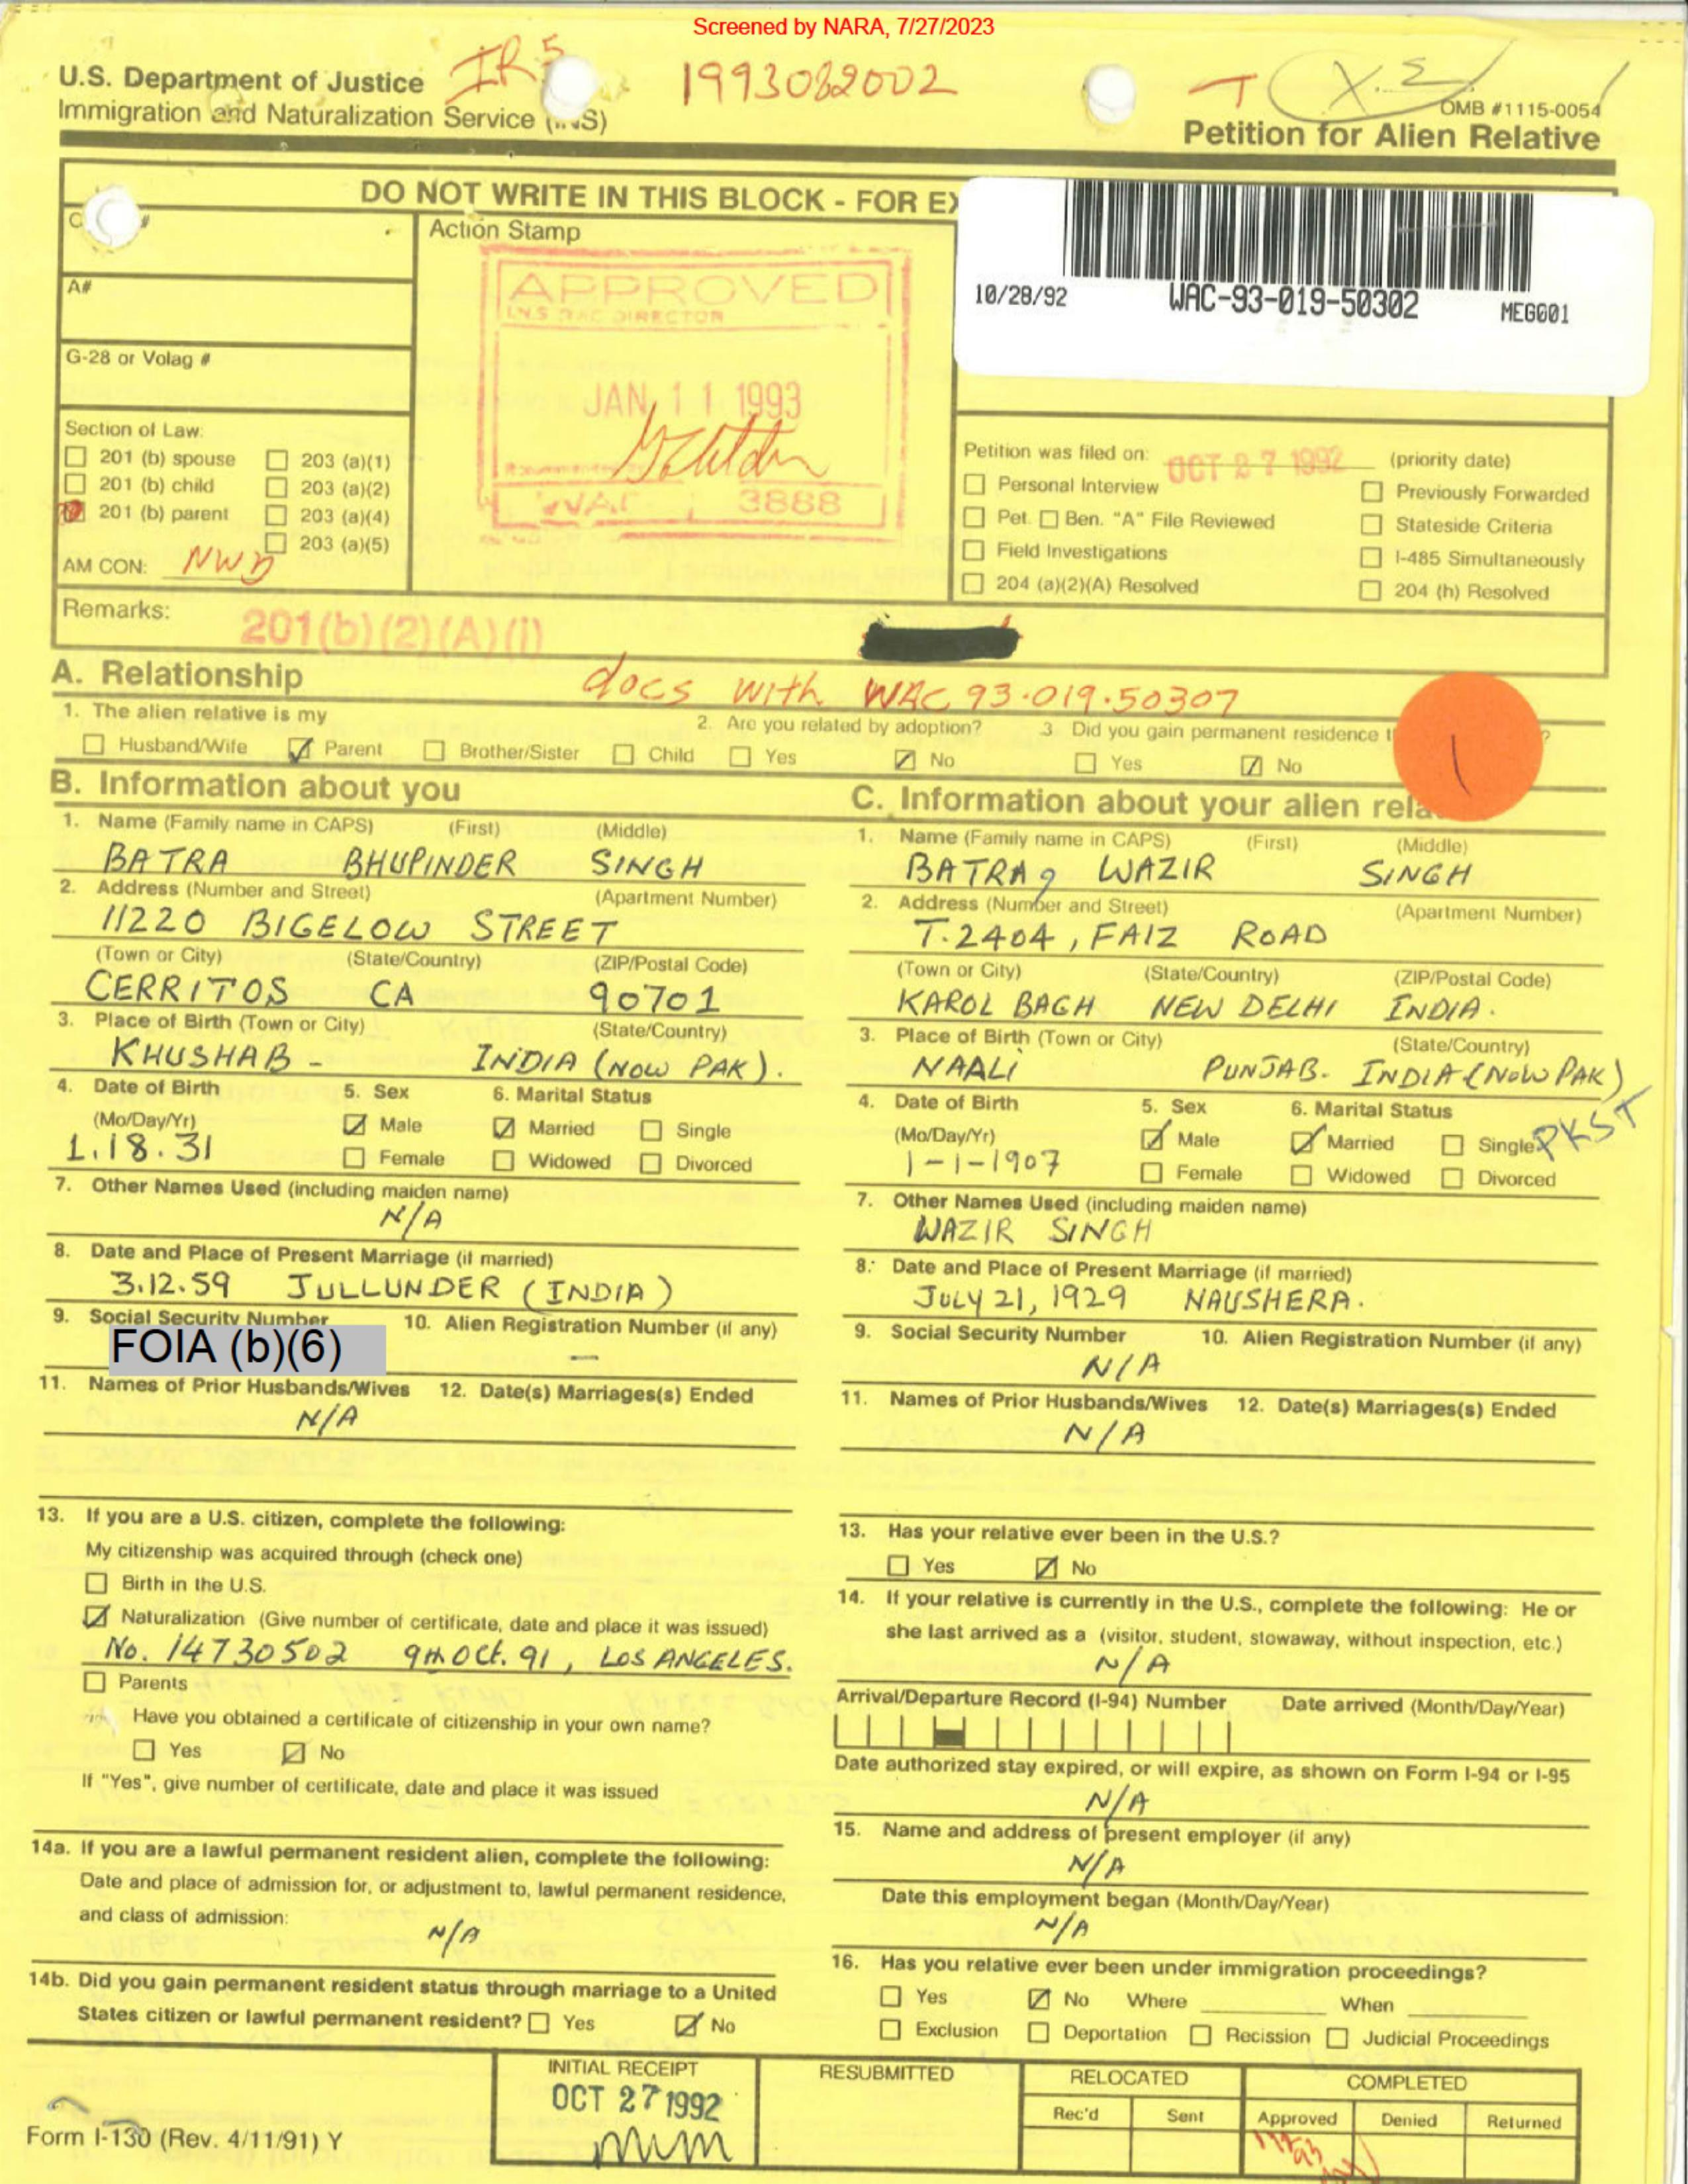 Screened by NARA, 7/27/2023
U.S. Department of Justice IR5 1993082002
Immigration and Naturalization Service (INS)
OMB #1115-0054
Petition for Alien Relative
DO NOT WRITE IN THIS BLOCK - FOR EX
10/28/92 WAC-93-019-50302 MEG001
Action Stamp
APPROVED
DIRECTOR
JAN 11 1993
WAC 3888
A#
G-28 or Volag #
Section of Law:
201 (b) spouse 203 (a)(1)
201 (b) child 203 (a)(2)
201 (b) parent 203 (a)(4)
203 (a)(5)
AM CON: NWD
Petition was filed on: OCT 27 1992 (priority date)
Personal Interview Previously Forwarded
Pet. Ben. "A" File Reviewed Stateside Criteria
Field Investigations I-485 Simultaneously
204 (a)(2)(A) Resolved 204 (h) Resolved
Remarks: 201(b)(2)(A)(i)
A. Relationship docs with WAC 93.019.50307
1. The alien relative is my 2. Are you related by adoption? 3 Did you gain permanent residence
Husband/Wife Parent Brother/Sister Child Yes No Yes No
1
B. Information about you
1. Name (Family name in CAPS) (First) (Middle)
BATRA BHUPINDER SINGH
2. Address (Number and Street) (Apartment Number)
11220 BIGELOW STREET
(Town or City) (State/Country) (ZIP/Postal Code)
CERRITOS CA 90701
3. Place of Birth (Town or City) (State/Country)
KHUSHAB - INDIA (NOW PAK).
4. Date of Birth 5. Sex 6. Marital Status
(Mo/Day/Yr) Male Married Single
1.18.31 Female Widowed Divorced
7. Other Names Used (including maiden name)
N/A
8. Date and Place of Present Marriage (if married)
3.12.59 JULLUNDER (INDIA)
9. Social Security Number 10. Alien Registration Number (if any)
FOIA (b)(6) —
11. Names of Prior Husbands/Wives 12. Date(s) Marriages(s) Ended
N/A
13. If you are a U.S. citizen, complete the following:
My citizenship was acquired through (check one)
Birth in the U.S.
Naturalization (Give number of certificate, date and place it was issued)
No. 14730502 9th Oct. 91, LOS ANGELES.
Parents
Have you obtained a certificate of citizenship in your own name?
Yes No
If "Yes", give number of certificate, date and place it was issued
14a. If you are a lawful permanent resident alien, complete the following:
Date and place of admission for, or adjustment to, lawful permanent residence,
and class of admission:
N/A
14b. Did you gain permanent resident status through marriage to a United
States citizen or lawful permanent resident? Yes No
C. Information about your alien rela
1. Name (Family name in CAPS) (First) (Middle)
BATRA, WAZIR SINGH
2. Address (Number and Street) (Apartment Number)
T.2404, FAIZ ROAD
(Town or City) (State/Country) (ZIP/Postal Code)
KAROL BAGH NEW DELHI INDIA.
3. Place of Birth (Town or City) (State/Country)
NAALI PUNJAB. INDIA (NOW PAK)
4. Date of Birth 5. Sex 6. Marital Status
(Mo/Day/Yr) Male Married Single PKST
1-1-1907 Female Widowed Divorced
7. Other Names Used (including maiden name)
WAZIR SINGH
8. Date and Place of Present Marriage (if married)
JULY 21, 1929 NAUSHERA.
9. Social Security Number 10. Alien Registration Number (if any)
N/A
11. Names of Prior Husbands/Wives 12. Date(s) Marriages(s) Ended
N/A
13. Has your relative ever been in the U.S.?
Yes No
14. If your relative is currently in the U.S., complete the following: He or
she last arrived as a (visitor, student, stowaway, without inspection, etc.)
N/A
Arrival/Departure Record (I-94) Number Date arrived (Month/Day/Year)
Date authorized stay expired, or will expire, as shown on Form I-94 or I-95
N/A
15. Name and address of present employer (if any)
N/A
Date this employment began (Month/Day/Year)
N/A
16. Has you relative ever been under immigration proceedings?
Yes No Where When
Exclusion Deportation Recission Judicial Proceedings
INITIAL RECEIPT RESUBMITTED RELOCATED COMPLETED
OCT 27 1992 Rec'd Sent Approved Denied Returned
Form I-130 (Rev. 4/11/91) Y